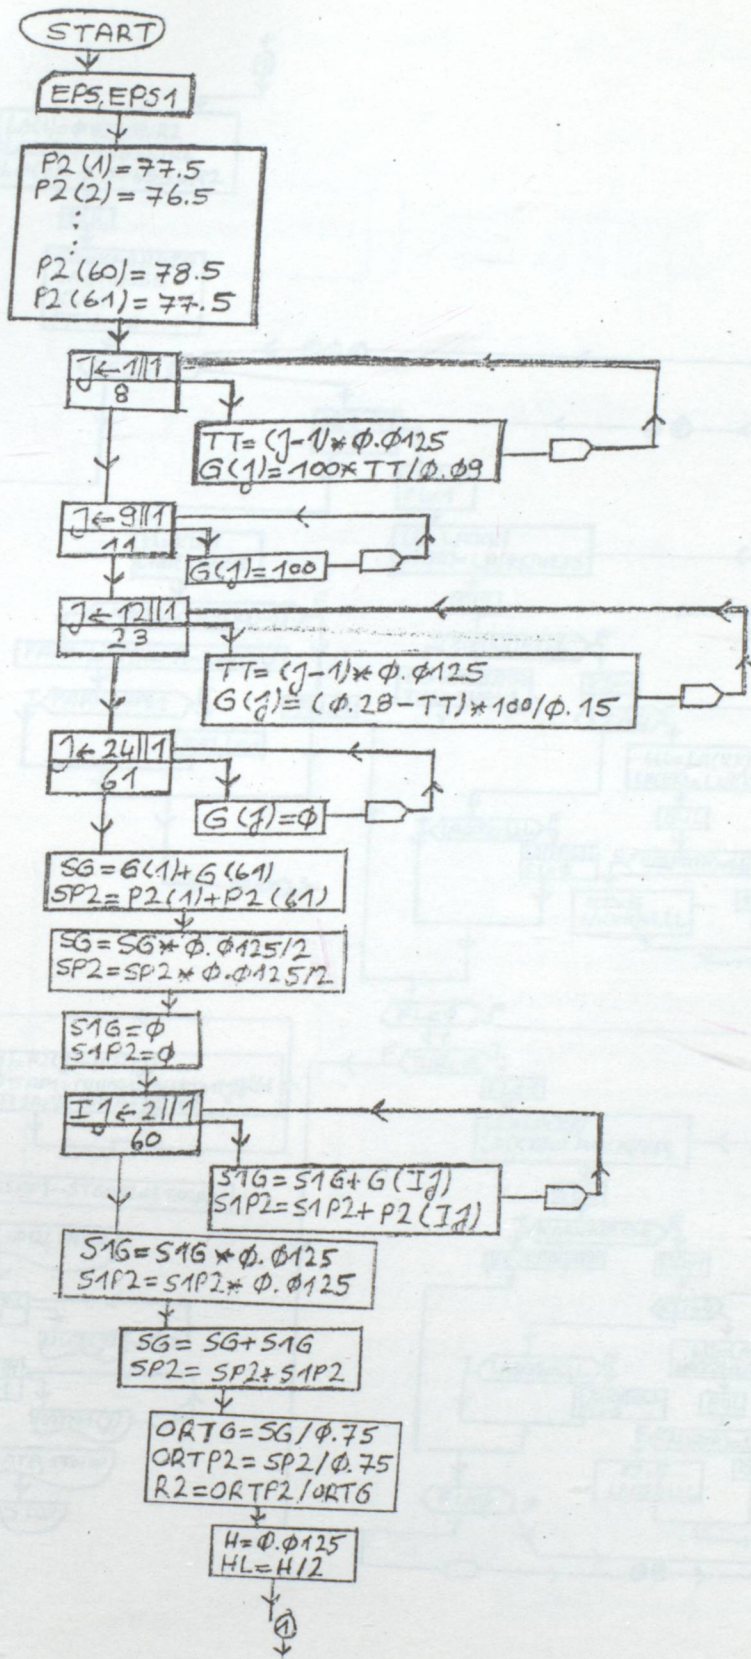 START
EPS,EPS1
P2(1)=77.5
P2(2)=76.5
:
:
P2(60)=78.5
P2(61)=77.5
J←1||1
8
TT=(J-1)*0.0125
G(J)=100*TT/0.09
J←9||1
11
G(J)=100
J←12||1
23
TT=(J-1)*0.0125
G(J)=(0.28-TT)*100/0.15
J←24||1
61
G(J)=0
SG=G(1)+G(61)
SP2=P2(1)+P2(61)
SG=SG*0.0125/2
SP2=SP2*0.0125/2
S1G=0
S1P2=0
I1←2||1
60
S1G=S1G+G(IJ)
S1P2=S1P2+P2(IJ)
S1G=S1G*0.0125
S1P2=S1P2*0.0125
SG=SG+S1G
SP2=SP2+S1P2
ORTG=SG/0.75
ORTP2=SP2/0.75
R2=ORTP2/ORTG
H=0.0125
HL=H/2
1